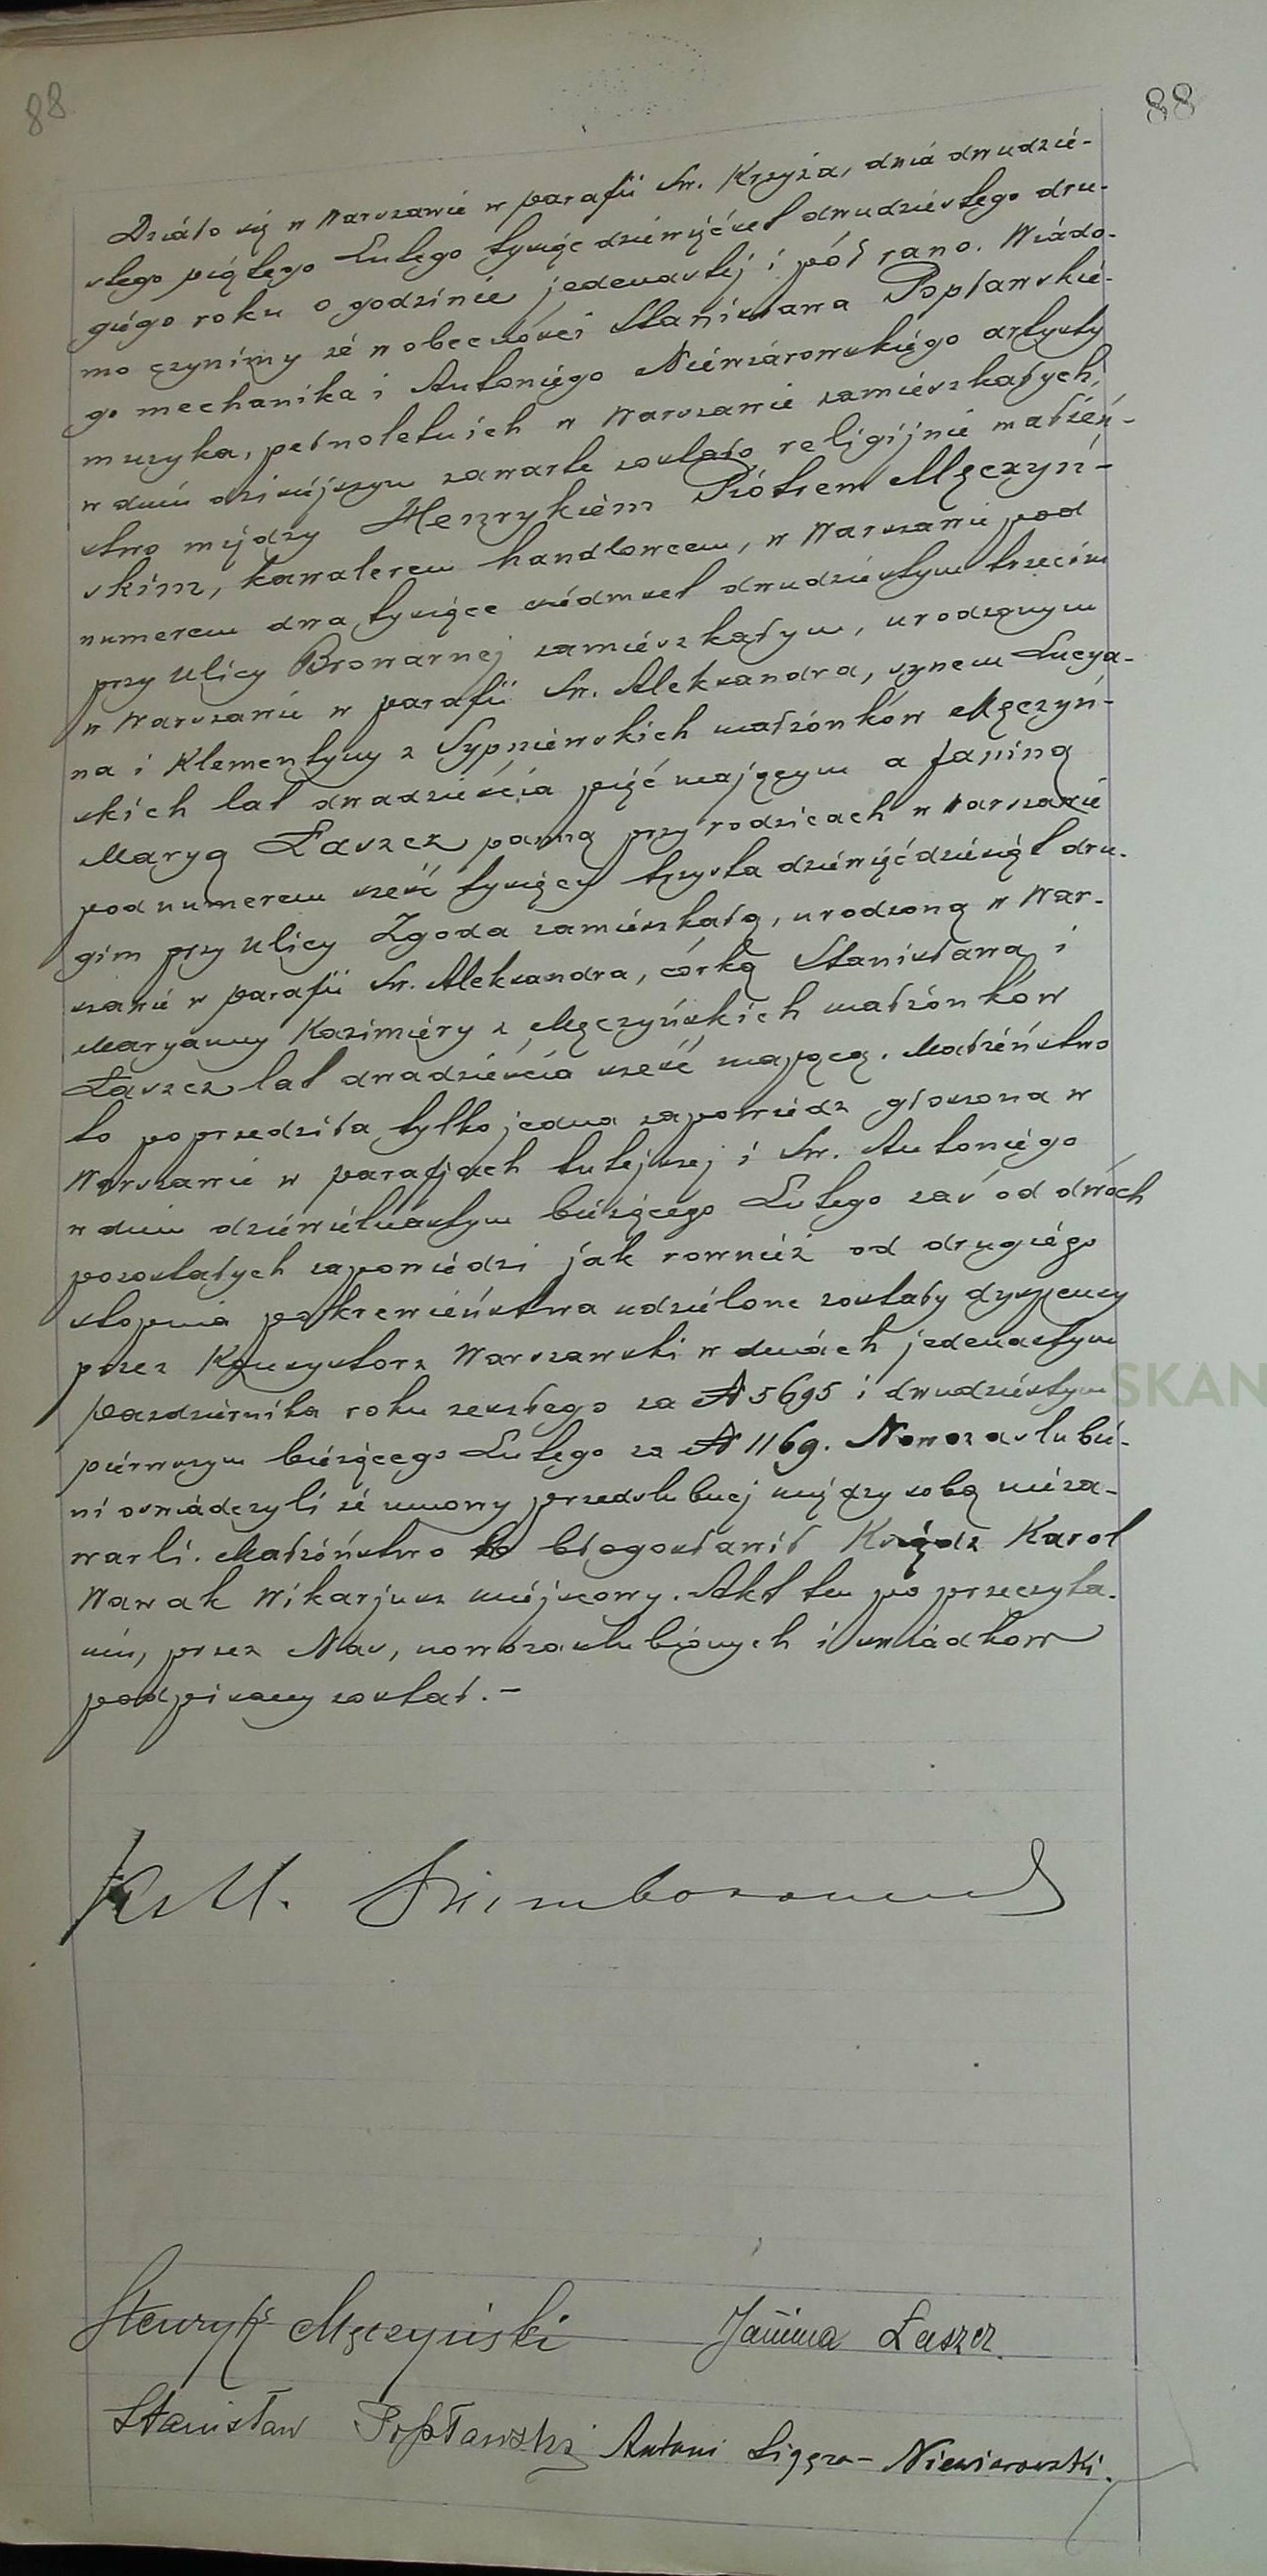 88
88
Działo się w Warszawie w parafii Św. Krzyża, dnia dwudzie-
stego piątego Lutego tysiąc dziewięćset dwudziestego dru-
giego roku o godzinie jedenastej i pół rano. Wiado-
mo czynimy że w obecności Stanisława Popławskie-
go mechanika i Antoniego Niewiarowskiego artysty
muzyka, pełnoletnich w Warszawie zamieszkałych,
w dniu dzisiejszym zawarte zostało religijnie małżeń-
stwo między Henrykiem Piotrem Męczyń-
skim, kawalerem handlowcem, w Warszawie pod
numerem dwa tysiące siedmset dwudziestym trzecim
przy ulicy Browarnej zamieszkałym, urodzonym
w Warszawie w parafii Św. Aleksandra, synem Lucya-
na i Klementyny z Sypniewskich małżonków Męczyń-
skich lat dwadzieścia pięć mającym a Janiną
Maryą Łaszcz panną przy rodzicach w Warszawie
pod numerem sześć tysięcy trzysta dziewięćdziesiąt dru-
gim przy ulicy Zgoda zamieszkałą, urodzoną w War-
szawie w parafii Św. Aleksandra, córką Stanisława i
Maryanny Kazimiery z Męczyńskich małżonków
Łaszcz lat dwadzieścia sześć mającą. Małżeństwo
to poprzedziła tylko jedna zapowiedz głoszona w
Warszawie w parafjach tutejszej i Św. Antoniego
w dniu dziewiętnastym bieżącego Lutego zaś od dwóch
pozostałych zapowiedzi jak rownież od drugiego
stopnia pokrewieństwa udzielone zostały dyspensy
przez Konsystorz Warszawski w dniach jedenastym
pazdziernika roku zeszłego za № 5695 i dwudziestym
pierwszym bieżącego Lutego za № 1169. Nowozaślubie-
ni oswiadczyli że umowy przedslubnej między sobą nieza-
warli. Małżeństwo to błogosławił Ksiądz Karol
Nawak Wikarjusz miejscowy. Akt ten po przeczyta-
niu, przez Nas, nowozaslubionych i swiadkow
podpisany został.-
SKAN
Henryk Męczyński Janina Łaszcz.
Stanisław Popławski Antoni Ligęza-Niewiarowski.